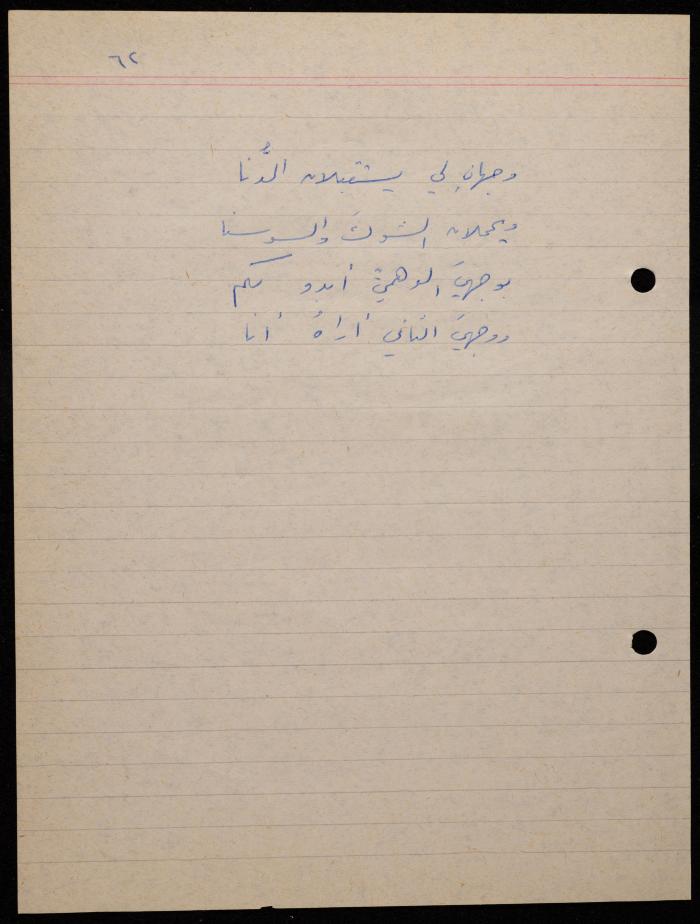 ٦٢
وجهانِ لي يستقبلان الدُّنا
ويحملان الشوكَ والسوسنا
بوجهيَ الوهميِّ أبدو لكم
ووجهيَ الثاني أراهُ أنا